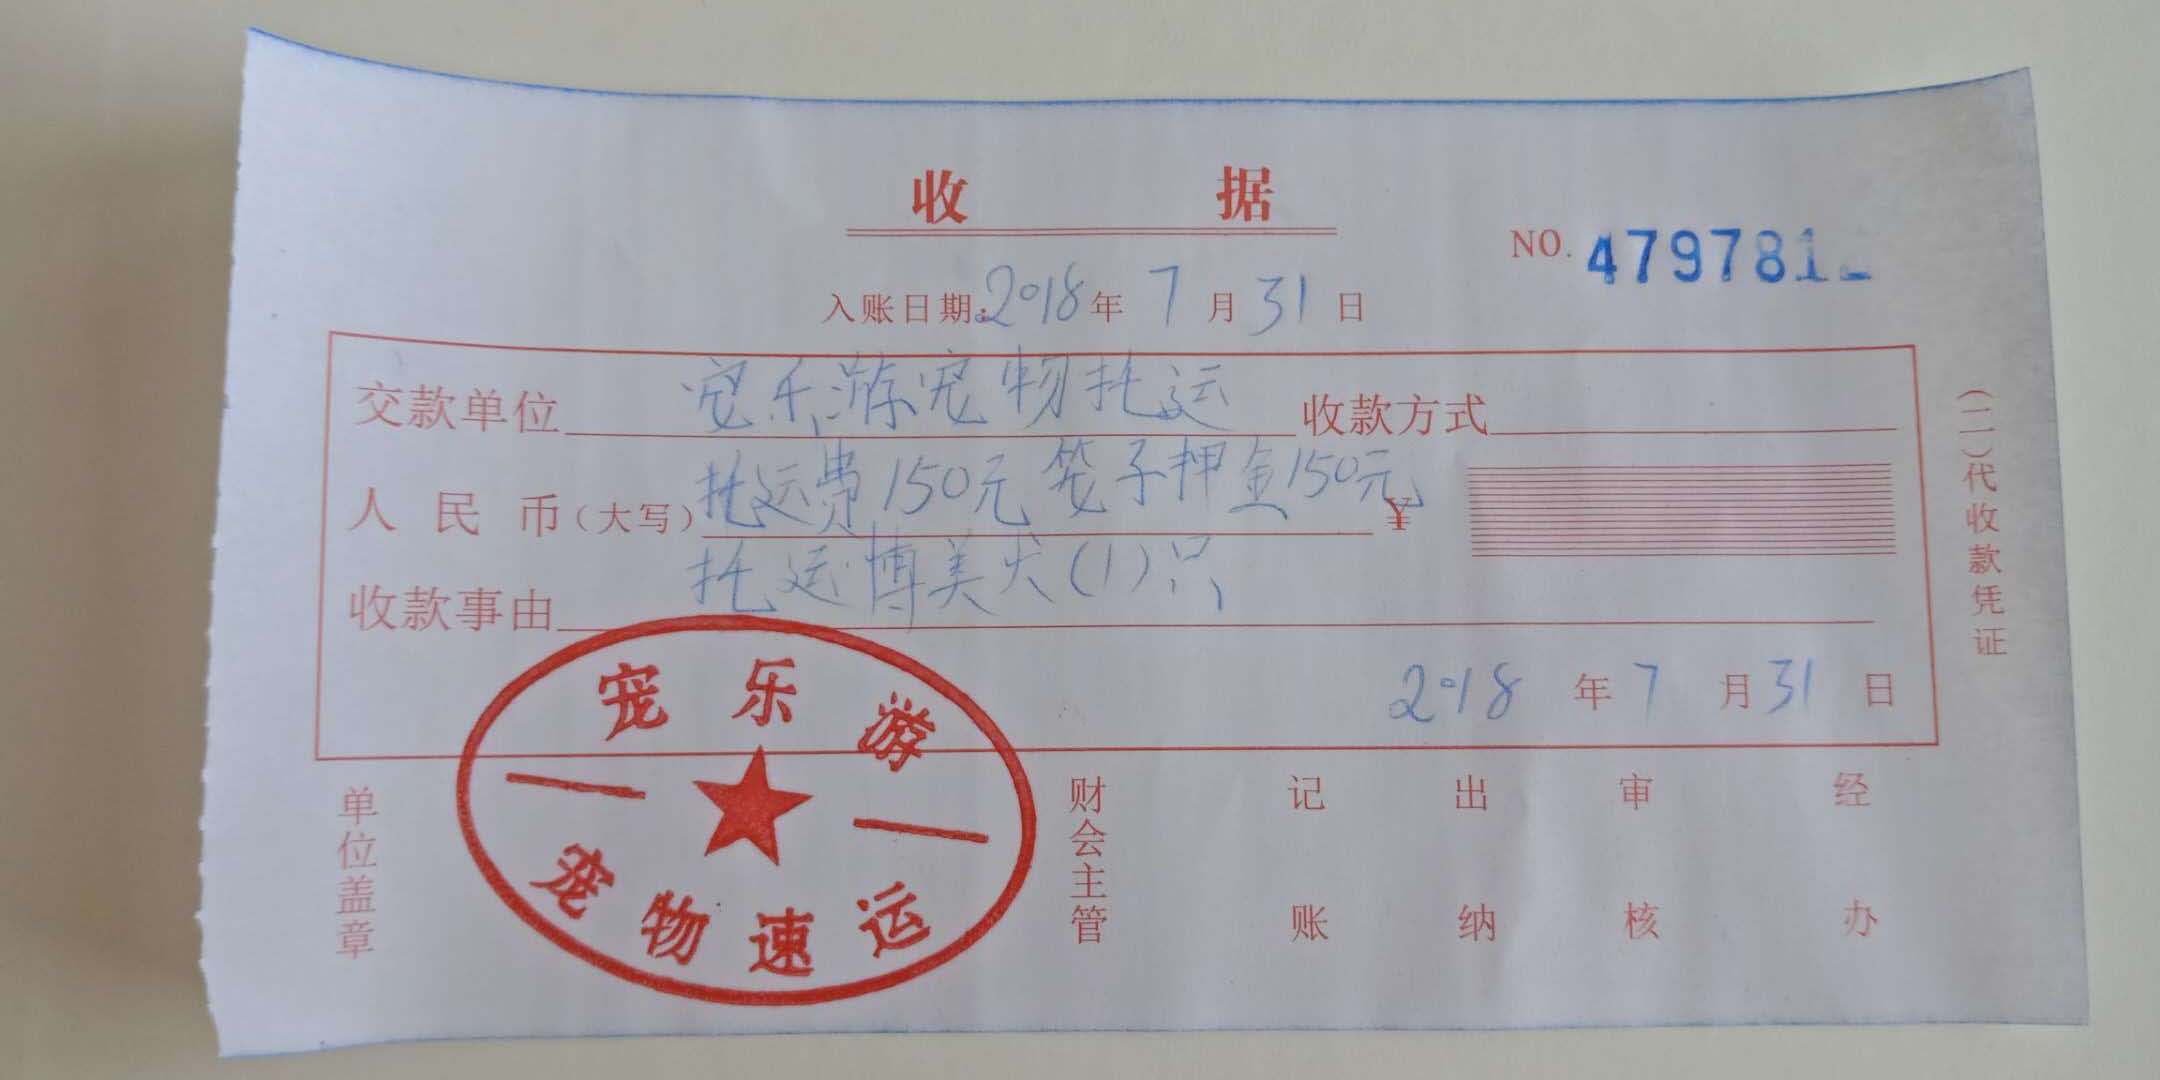 收据
NO. 4797812
入账日期:2018年7月31日
交款单位 宠乐游宠物托运 收款方式
人民币(大写) 托运费150元 笼子押金150元 ¥
收款事由 托运博美犬(1)只
2018年7月31日
(二)代收款凭证
宠乐游
宠物速运
单位盖章 财会主管 记账 出纳 审核 经办